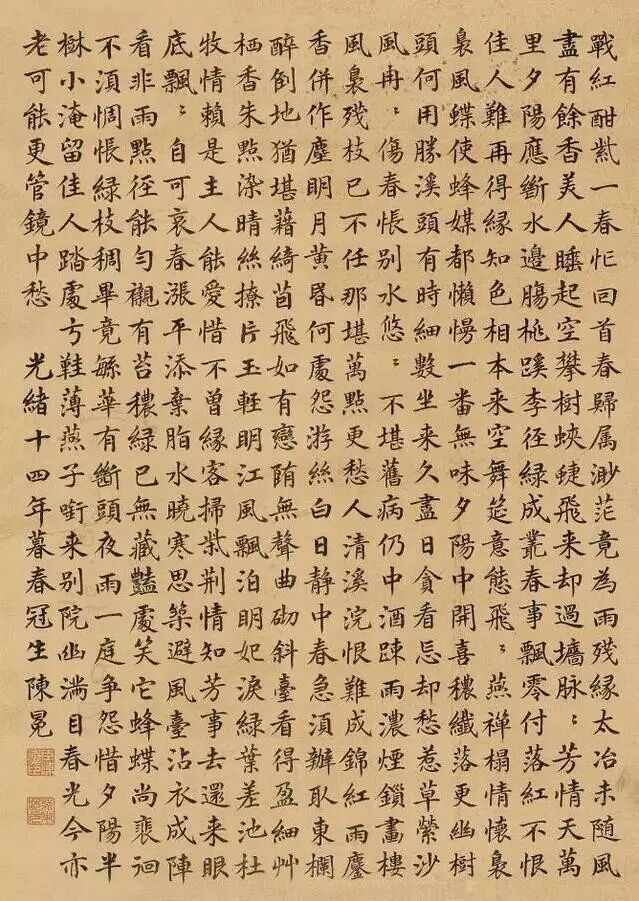 戰紅酣紫一春忙回首春歸属渺茫竟為雨殘緣太冶未随風
盡有餘香美人睡起空攀樹蛺蜨飛来却過墻脉〻芳情天萬
里夕陽應斷水邊腸桃蹊李徑緑成叢春事飄零付落紅不恨
佳人難再得緣知色相本来空舞筵意態飛〻燕禪榻情懷裊
裊風蝶使蜂媒都懶慢一番無味夕陽中開喜穠纖落更幽樹
頭何用勝溪頭有時細數坐来久盡日貪看忘却愁惹草縈沙
風冉〻傷春悵别水悠〻不堪舊病仍中酒踈雨濃煙鎖畫樓
風裊殘枝已不任那堪萬點更愁人清溪浣恨難成錦紅雨鏖
香併作塵明月黄昬何處怨游絲白日静中春急湏辦取東欄
醉倒地猶堪藉綺茵飛如有戀陏無聲曲砌斜臺看得盈細艸
栖香朱點染晴絲撩片玉輕明江風飄泊明妃淚緑葉差池杜
牧情賴是主人能愛惜不曾緣客掃紫荆情知芳事去還来眼
底飄〻自可哀春漲平添棄脂水曉寒思築避風臺沾衣成陣
看非雨點徑能勻襯有苔穠緑已無藏豔處笑它蜂蝶尚裵徊
不湏惆悵緑枝稠畢竟繁華有斷頭夜雨一庭争怨惜夕陽半
樹小淹留佳人踏處弓鞋薄燕子銜来别院幽滿目春光今亦
老可能更管鏡中愁 光緒十四年暮春冠生陳冕